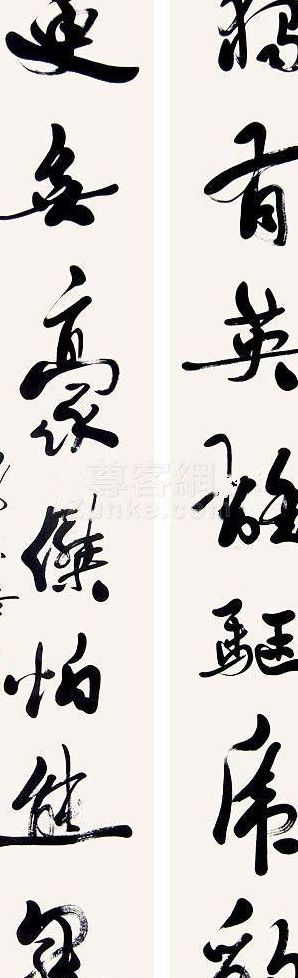 獨有英雄驅虎豹
更無豪傑怕熊羆
尊客網
Zunke.com